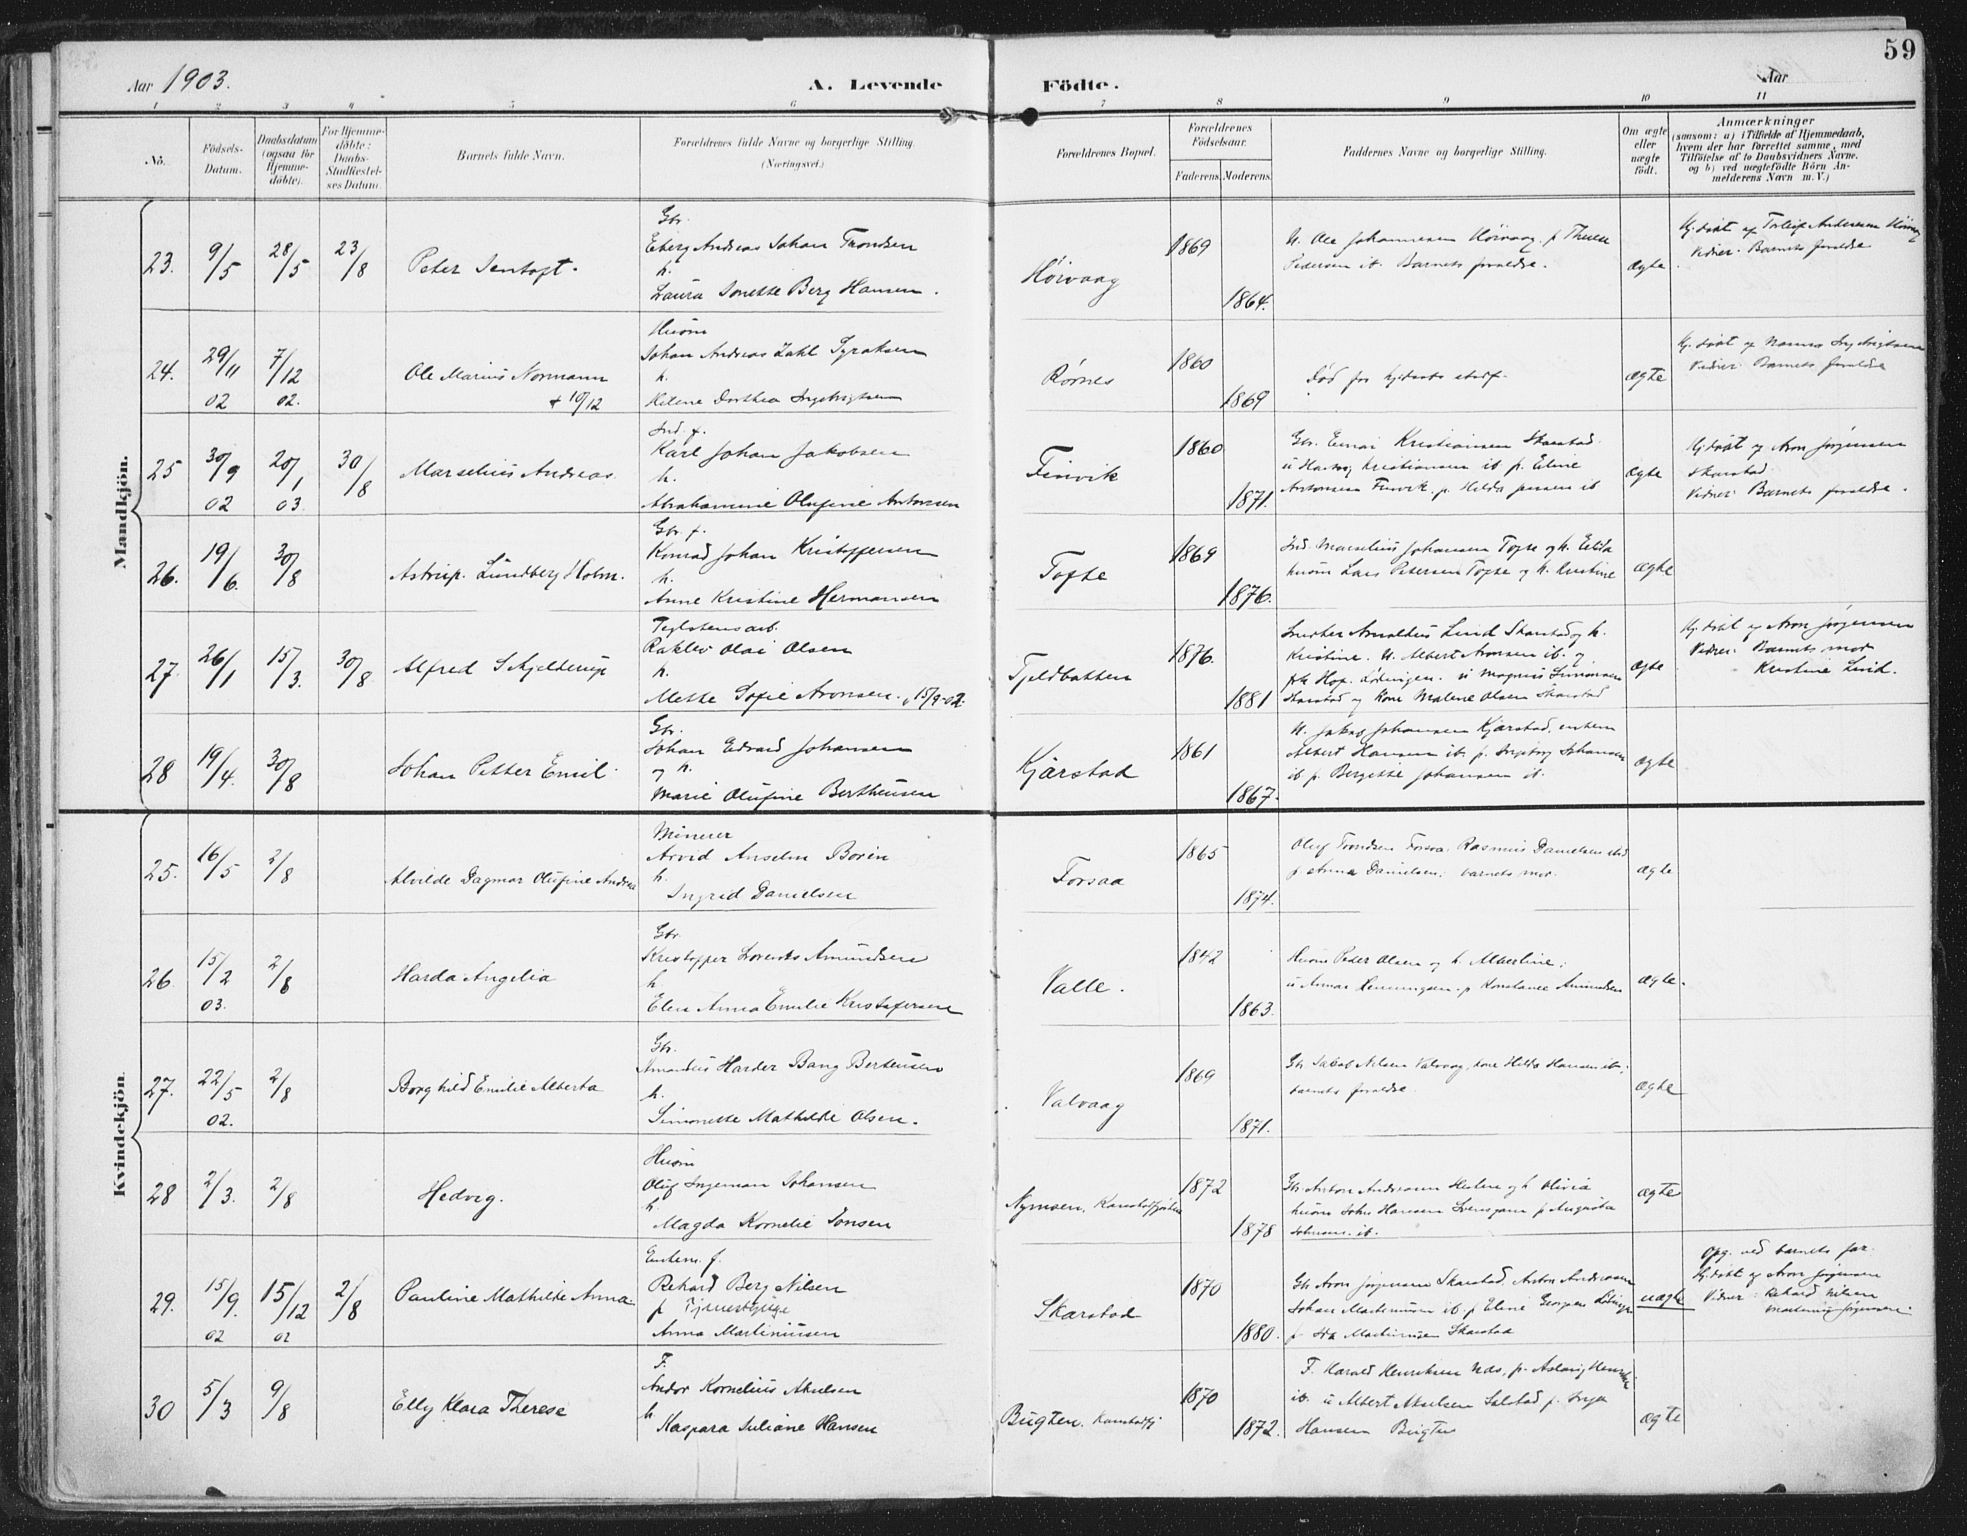 59
Aar 1903.
A. Levende Födte.
Aar
1 2 3 4 5 6 7 8 9 10 11
No.
Födsels-
Datum.
Daabsdatum
(ogsaa for
Hjemme-
döbte).
For Hjemme-
döbte:
Daabs-
Stadfæstel-
ses Datum.
Barnets fulde Navn.
Forældrenes fulde Navne og borgerlige Stilling.
(Næringsvei.)
Forældrenes Bopæl.
Forældrenes
Födselsaar.
Faderens. Moderens.
Faddernes Navne og borgerlige Stilling.
Om ægte
eller
uægte
födt.
Anmærkninger
(saasom: a) i Tilfælde af Hjemmedaab,
hvem der har forrettet samme, med
Tilföielse af to Daabsvidners Navne.
og b) ved uægtefödte Börn An-
melderens Navn m. V.)
Mandkjön.
23. 9/5 28/5 23/8 Peter Jentoft.
Gbr.
Eberg Andreas Johan Trondsen
h.
Laura Jonette Berg Hansen.
Hørvaag 1869 1864.
U. Ole Johannesen Hørvaag. p
Pedersen ib. Barnets forældre.
ægte
Hj.døbt af Andersen Hørvaag
Vidner: Barnets forældre
24. 29/11 02 7/12 02. Ole Marius Normann
+ 10/12
Husm
Johan Andreas Zahl Syraksen
h.
Helene Dorthea Ingebrigtsen
Rørnes 1860 1869
Død før hj.daabs stadf.
ægte
Hj.døbt af Ingebrigtsen
Vidner: Barnets forældre
25 30/9 02 20/1 03. 30/8 Marselius Andreas.
Ind. f.
Karl Johan Jakobsen
h.
Abrahamine Olufine Antonsen
Finvik 1860 1871.
Gbr. Einar Kristiansen Skarstad.
u Kristiansen ib p. Eline
Antonsen Finvik. p. Hilda Jensen ib
ægte
Hj.døbt af Aron Jørgensen
Skarstad.
Vidner: Barnets forældre.
26. 19/6 30/8 Astrup. Lundberg Holm.
Gbr. f.
Konrad Johan Kristoffersen
h.
Anne Kristine Hermansen
Tofte 1869 1876.
Ind. Marselius Johansen Tofte og h.
husm Lars Petersen Tofte og h. Kristine
ægte
27. 26/1 15/3. 30/8 Alfred Schjelderup
Teglstensarb.
Olai Olsen
h.
Mette Sofie Aronsen. v. 15/9-02.
Tjeldbakken 1876. 1881
Arnoldus Lind Skarstad og h.
Kristine. U. Albert Aronsen ib. og
Hop. Lødingen. u Magnus Simonsen
Skarstad og Kone Malene Olsen Skarstad
ægte
Hj.døbt af Aron Jørgensen
Vidner: Barnets mor
Kristine Lind.
28 19/4. 30/8 Johan Petter Emil.
Gbr.
Johan Edvard Johansen
og h.
Marie Olufine Bertheusen
Kjærstad 1861 1867.
U. Jakob Johansen Kjærstad. enkem
Albert Hansen ib. p. Ingeborg Johansen
ib p. Bergette Johansen ib.
ægte
Kvindekjön.
25. 16/5 2/8 Alvilde Dagmar Olufine Andrea
Minerer
Arvid Anselm Borén
h.
Ingrid Danielsen
Forsaa 1865 1874.
Oluf Trondsen Forsaa. Rasmus Danielsen
p Anna Danielsen; barnets mor.
ægte
26 15/2 03. 2/8 Harda Angelia
Gbr.
Kristoffer Lorents Amundsen
h.
Elen Anna Emilie Kristofersen
Valle. 1842 1863.
Husm Peder Olsen og h. Albertine;
u Annar Henningsen. p Konstance Amundsen
ægte.
27. 22/5 02. 2/8 Borghild Emilie Alberta
Gbr.
Amandus Harder Bang Bertensen
h.
Simonette Mathilde Olsen.
Valvaag 1869 1871.
Gbr Jakob Nilsen Valvaag, kone Hilda Hansen ib.;
barnets forældre.
ægte
28 2/3. 2/8 Hedvig.
Husm
Oluf Ingeman Johansen
h.
Magda Kornelie Jonsen
1872 1878
Gbr Anton Andreasen og h Olivia
husm John Hansen p Augusta
Johnsen. ib.
ægte
29. 15/9. 02 15/12 02 2/8 Pauline Mathilde Anna.
Enkem. f.
Rekard Berg Nilsen
p Tjenestepige
Anna Martiniusen
Skarstad 1870 1880.
Gbr Aron Jørgensen Skarstad. Anton Andreasen
Johan Martinusen ib. p Eline
p Ida Martinusen Skarstad
uægte
Opg. ved barnets far.
Hj.døbt af Aron Jørgensen
Vidner: Rekard Nilsen
Jørgensen.
30 5/3 9/8 Elly Klara Therese
F.
Andor Kornelius Akselsen
h
Kaspara Juliane Hansen
Bugten. Kanstadfj 1870 1872.
F. Harald Henriksen Nds, p. Aslaug
ib. u Albert Akselsen p. Inga
Hansen Bugten
ægte